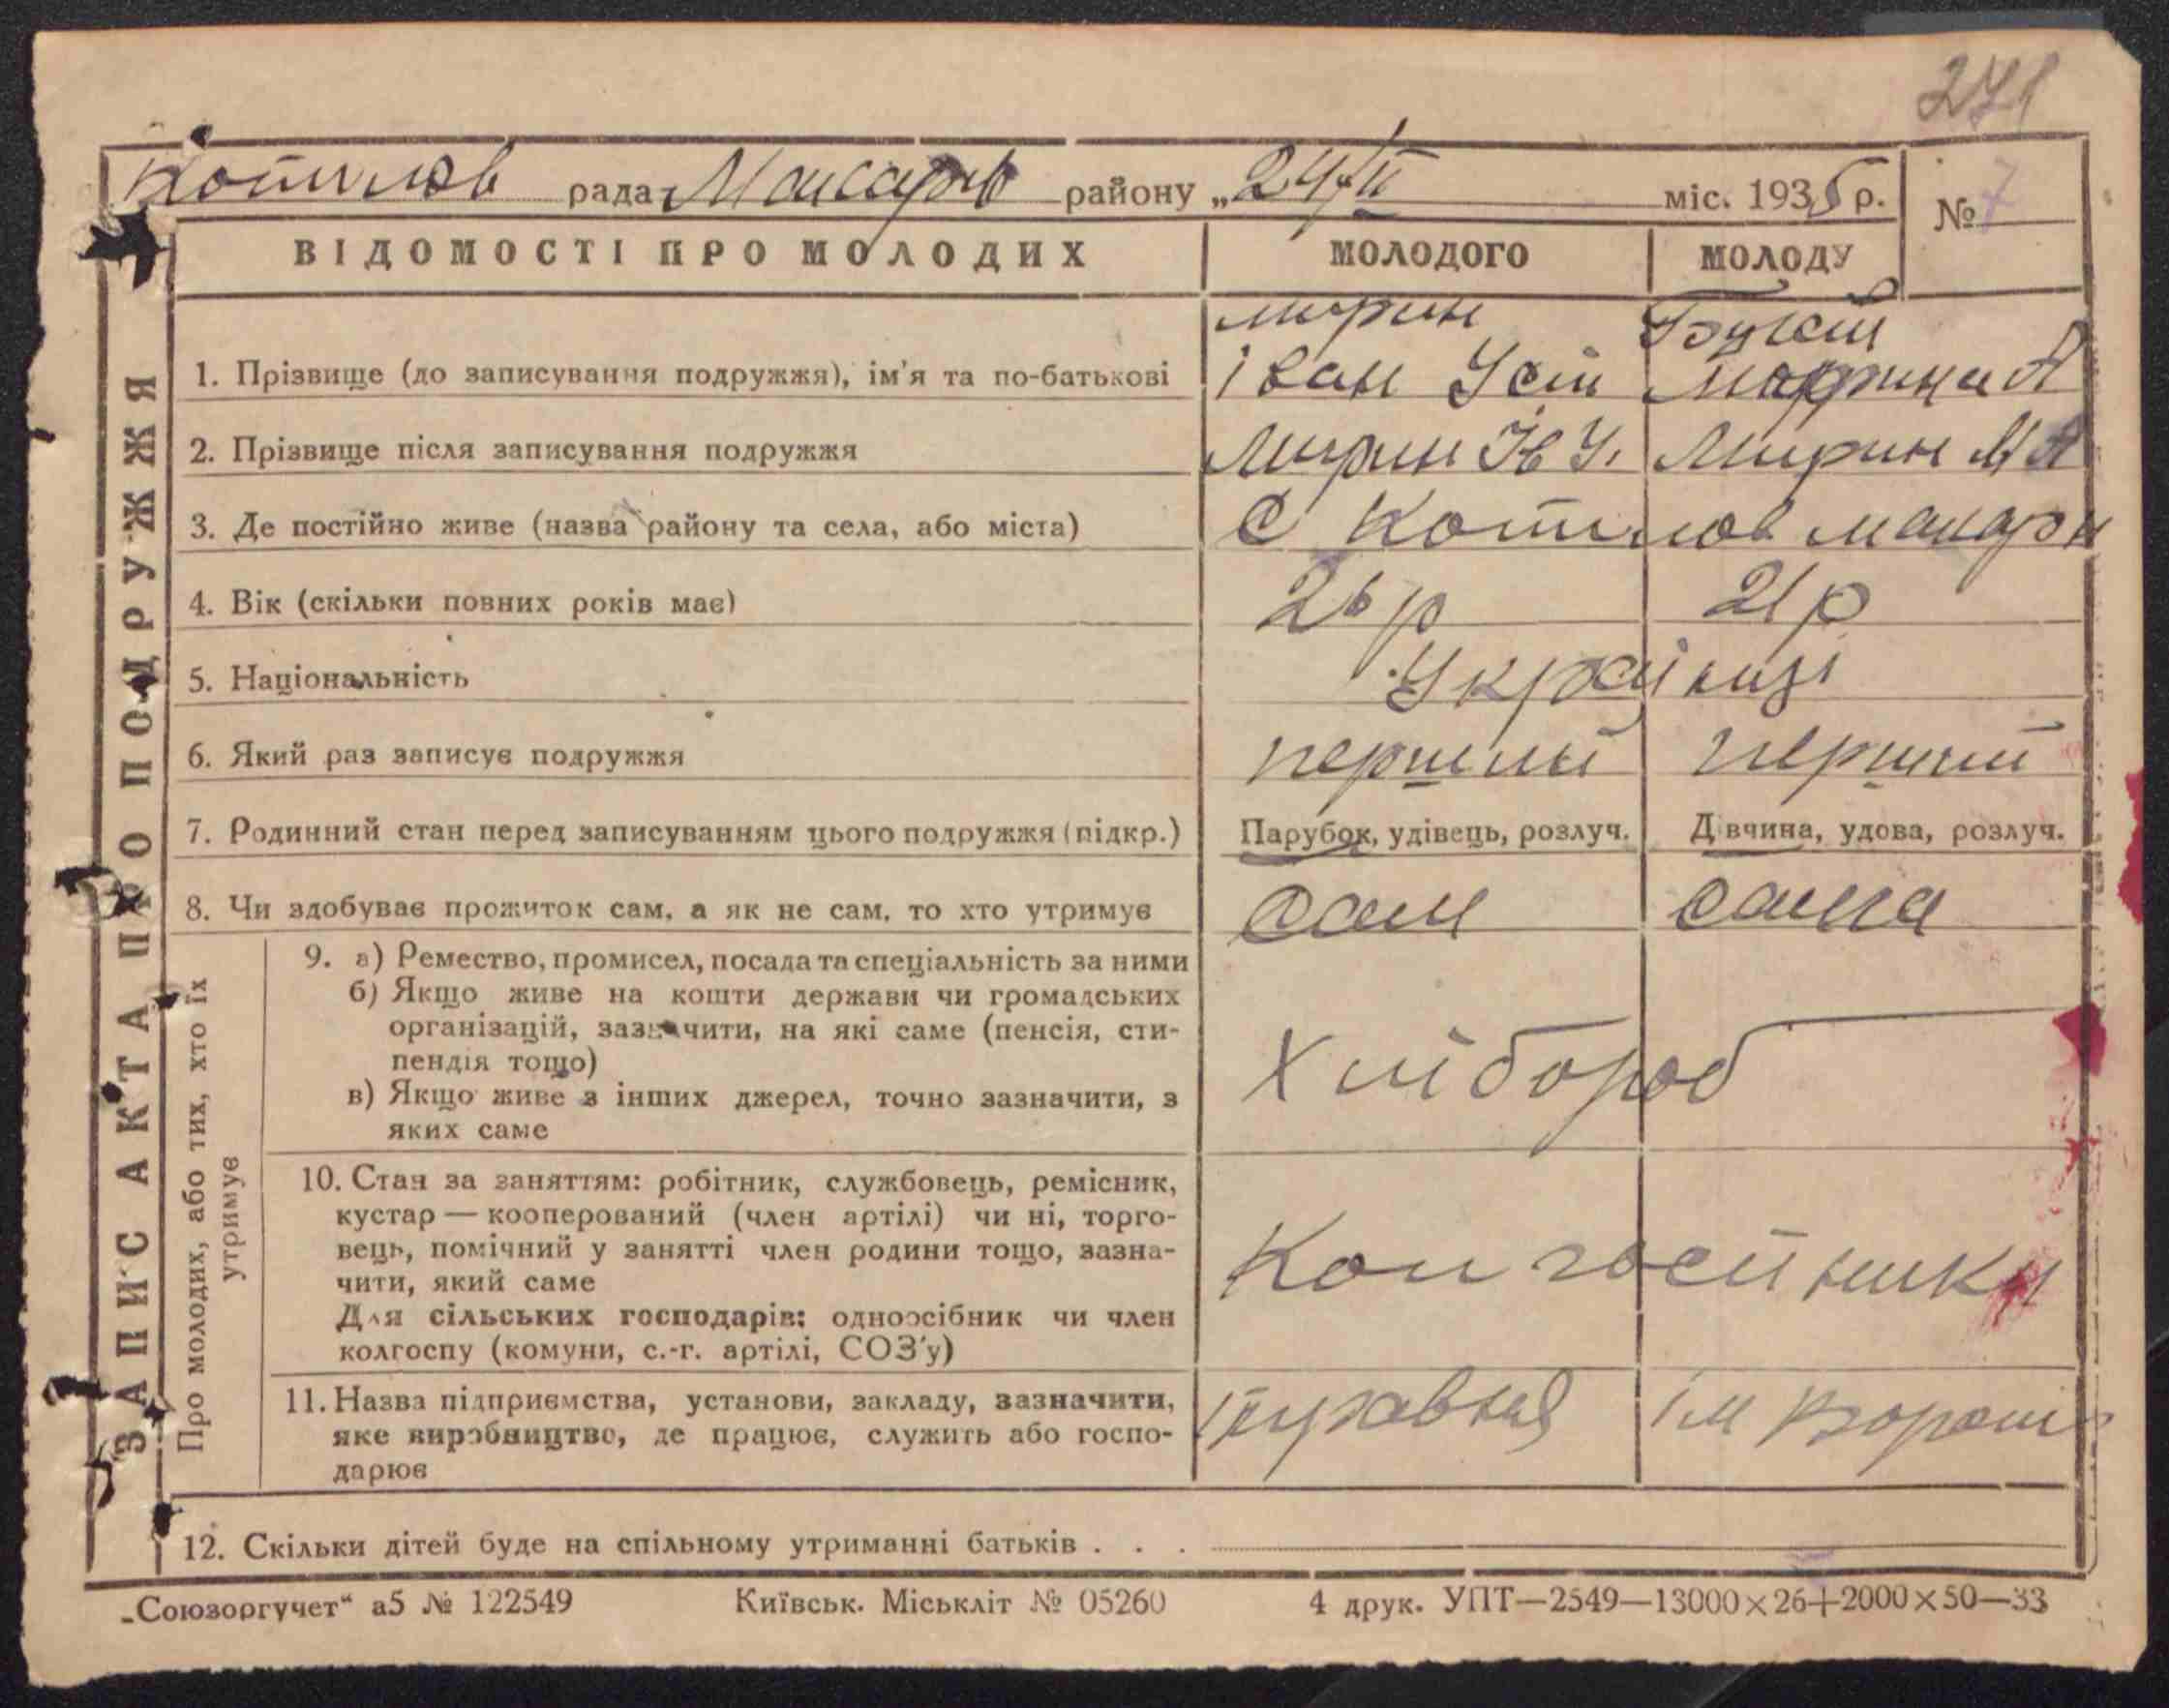 271
Котилов рада Макарів району „24/II міс. 1935 р. № 7
ВІДОМОСТІ ПРО МОЛОДИХ МОЛОДОГО МОЛОДУ
мирин
1. Прізвище (до записування подружжя), ім'я та по-батькові Іван Усти Марина А
2. Прізвище після записування подружжя Мирин Ів У. Мирин М А
3. Де постійно живе (назва району та села, або міста) С Котилов макарн
4. Вік (скільки повних років має) 26 р 21 р
5. Національність Українці
6. Який раз записує подружжя перший перший
7. Родинний стан перед записуванням цього подружжя (підкр.) Парубок, удівець, розлуч. Дівчина, удова, розлуч.
8. Чи здобуває прожиток сам, а як не сам, то хто утримує сам сама
Про молодих, або тих, хто їх
утримує
9. а) Ремество, промисел, посада та спеціальність за ними
б) Якщо живе на кошти держави чи громадських
організацій, зазначити, на які саме (пенсія, сти-
пендія тощо)
в) Якщо живе з інших джерел, точно зазначити, з
яких саме
Хлібороб
10. Стан за заняттям: робітник, службовець, ремісник,
кустар — кооперований (член артілі) чи ні, торго-
вець, помічний у занятті член родини тощо, зазна-
чити, який саме
Для сільських господарів: одноосібник чи член
колгоспу (комуни, с.-г. артілі, СОЗ'у)
Колгоспники
11. Назва підприємства, установи, закладу, зазначити,
яке виробництво, де працює, служить або госпо-
дарює
ім Ворош
12. Скільки дітей буде на спільному утриманні батьків . . .
ЗАПИС АКТА ПРО ПОДРУЖЖЯ
„Союзоргучет“ а5 № 122549 Київськ. Міськліт № 05260 4 друк. УПТ—2549—13000×26+2000×50—33